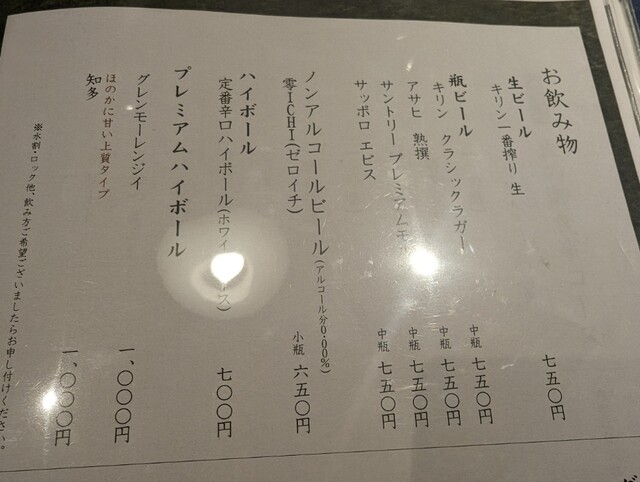 お飲み物
生ビール
キリン一番搾り生 七五〇円
瓶ビール
キリン クラシックラガー 中瓶 七五〇円
アサヒ 熟撰 中瓶 七五〇円
サントリー プレミアムモ 中瓶 七五〇円
サッポロ エビス 中瓶 七五〇円
ノンアルコールビール(アルコール分0.00%)
零ICHI(ゼロイチ) 小瓶 六五〇円
ハイボール
定番辛口ハイボール(ホワイ ス) 七〇〇円
プレミアムハイボール
グレンモーレンジイ 一、〇〇〇円
ほのかに甘い上質タイプ
知多 一、〇〇〇円
※水割・ロック他、飲み方ご希望ございましたらお申し付けください。